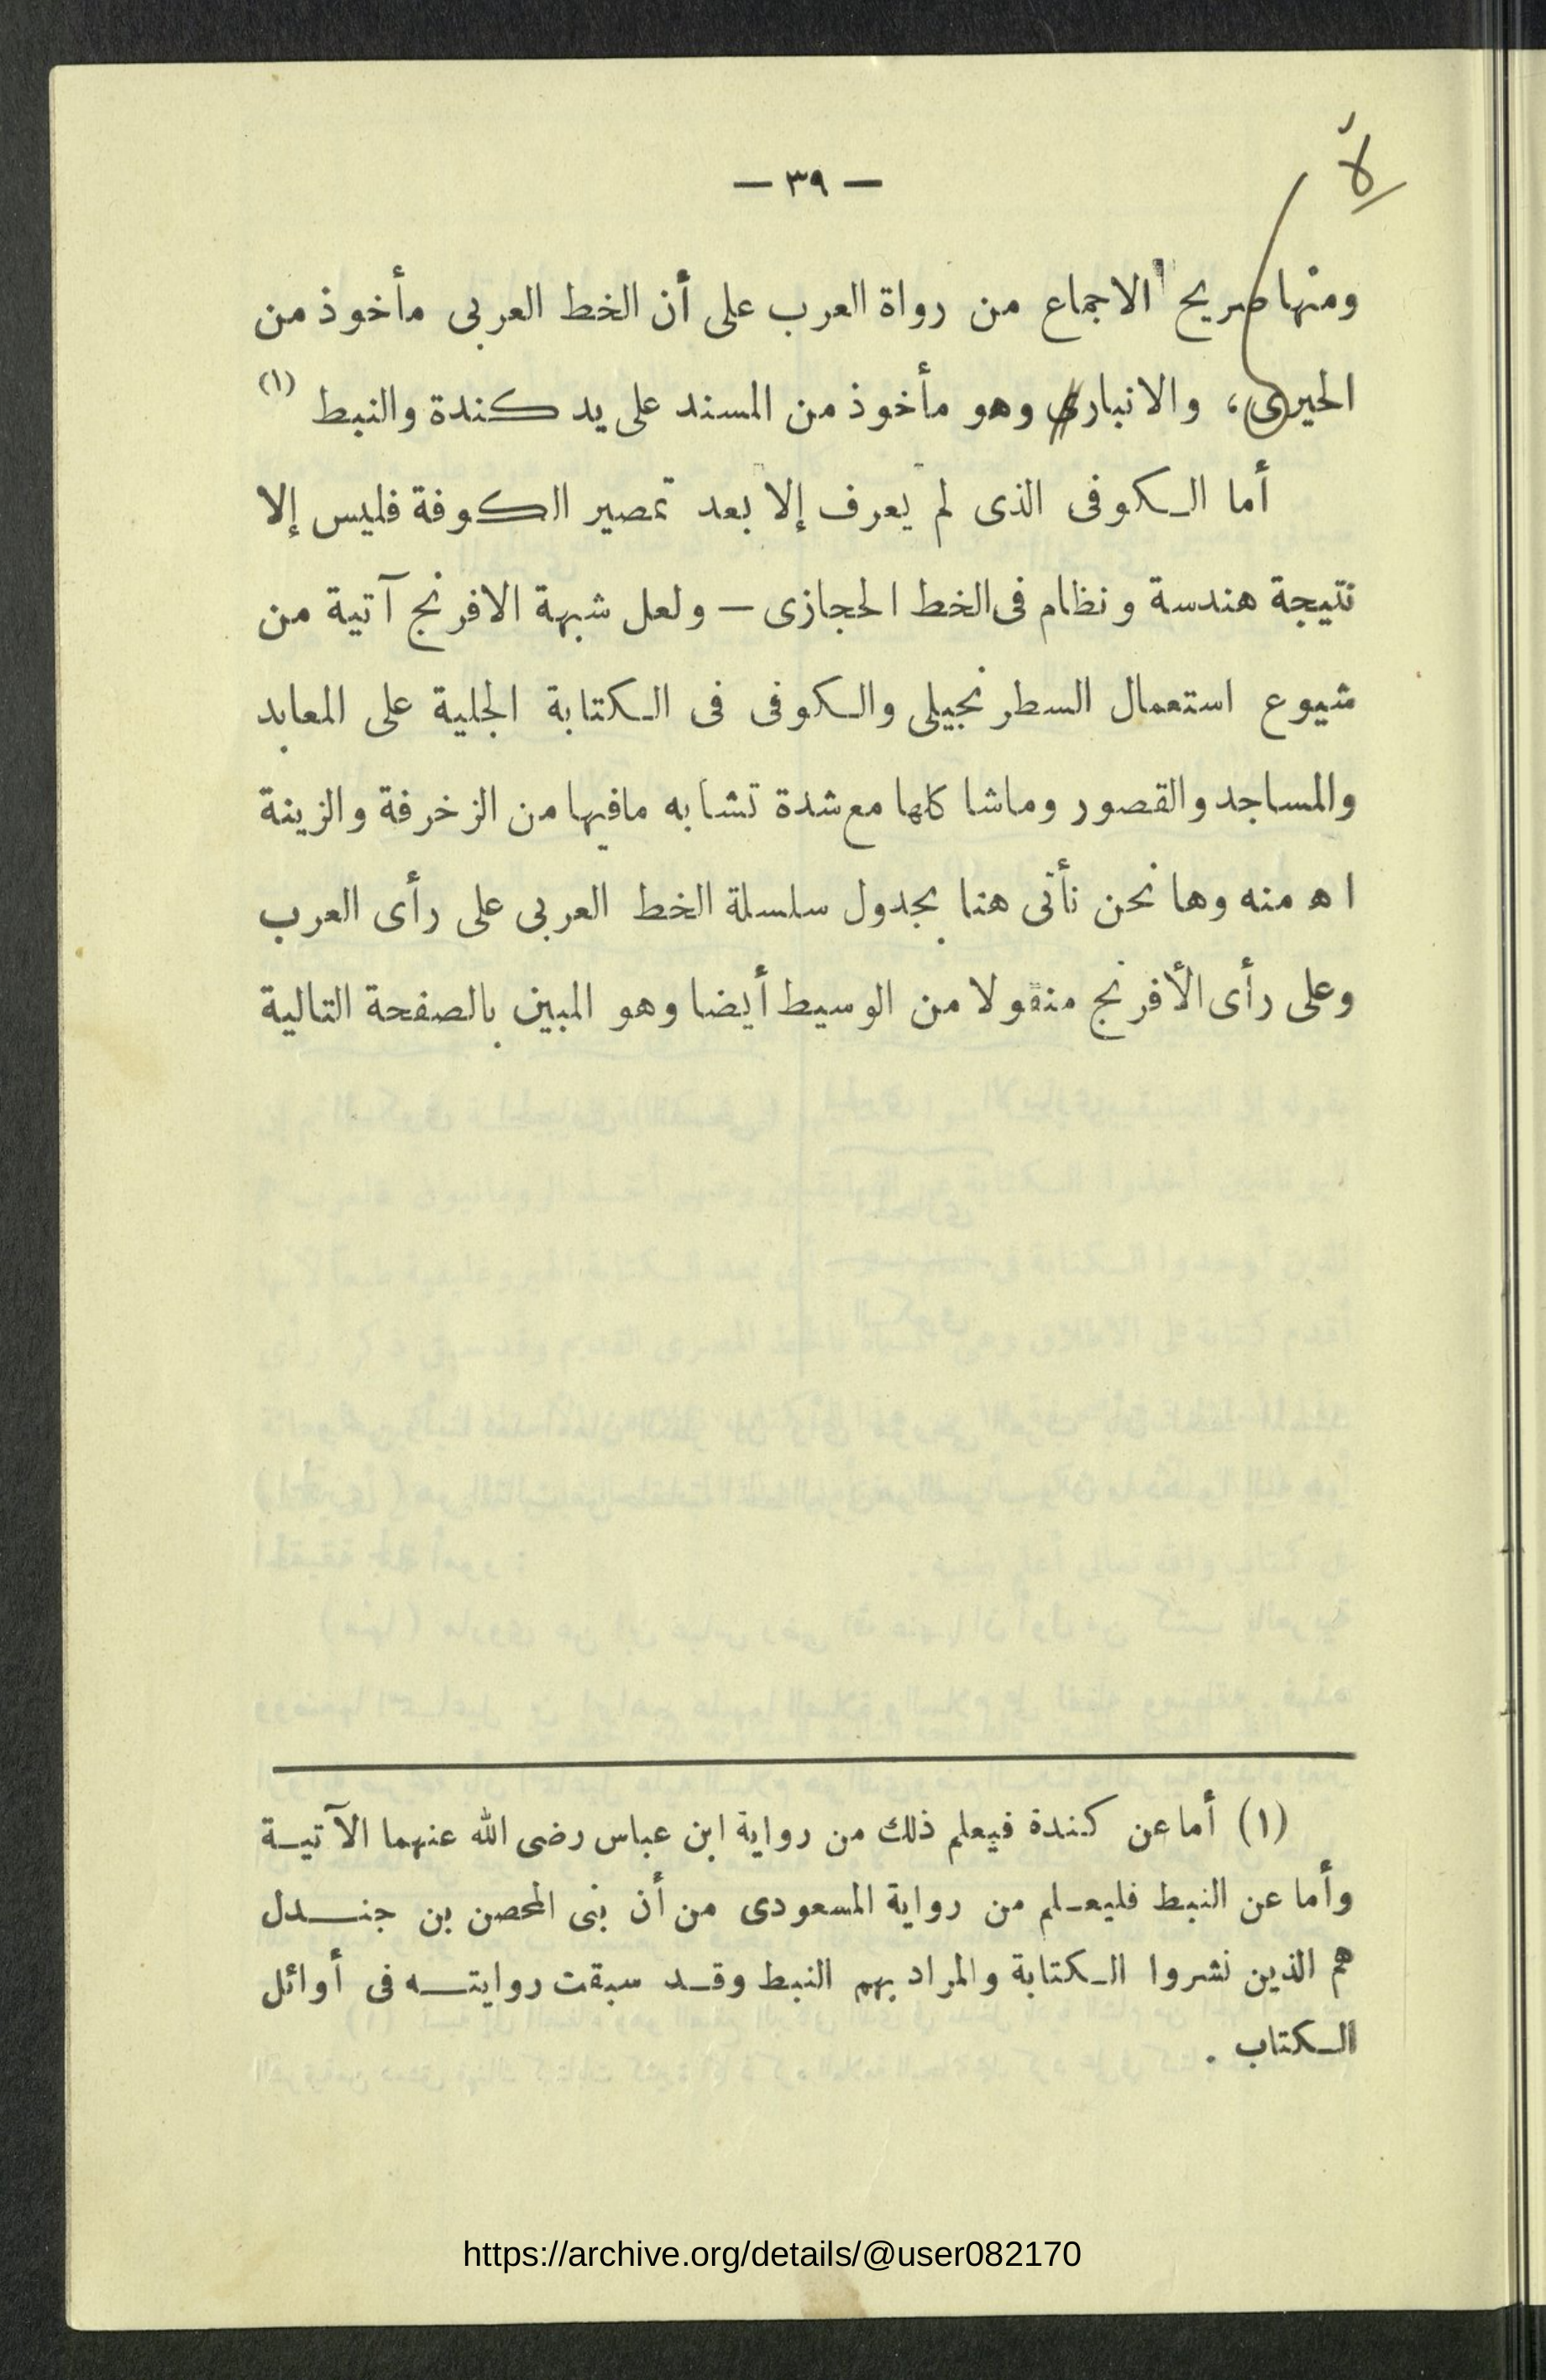 — ٣٩ —
لاً
ومنها صريح الاجماع من رواة العرب على أن الخط العربى مأخوذ من
الحيرى، والانبارى وهو مأخوذ من المسند على يد كندة والنبط (١)
أما الكوفى الذى لم يعرف إلا بعد تمصير الكوفة فليس إلا
نتيجة هندسة ونظام فى الخط الحجازى — ولعل شبهة الافرنج آتية من
شيوع استعمال السطرنجيلى والكوفى فى الكتابة الجلية على المعابد
والمساجد والقصور وماشاكلها مع شدة تشابه مافيها من الزخرفة والزينة
اه منه وها نحن نأتى هنا بجدول سلسلة الخط العربى على رأى العرب
وعلى رأى الأفرنج منقولا من الوسيط أيضا وهو المبين بالصفحة التالية
(١) أما عن كندة فيعلم ذلك من رواية ابن عباس رضى الله عنهما الآتيـة
وأما عن النبط فليعـلم من رواية المسعودى من أن بنى المحصن بن جنـــدل
هم الذين نشروا الكتابة والمراد بهم النبط وقـد سبقت روايتـــه فى أوائل
الكتاب .
https://archive.org/details/@user082170